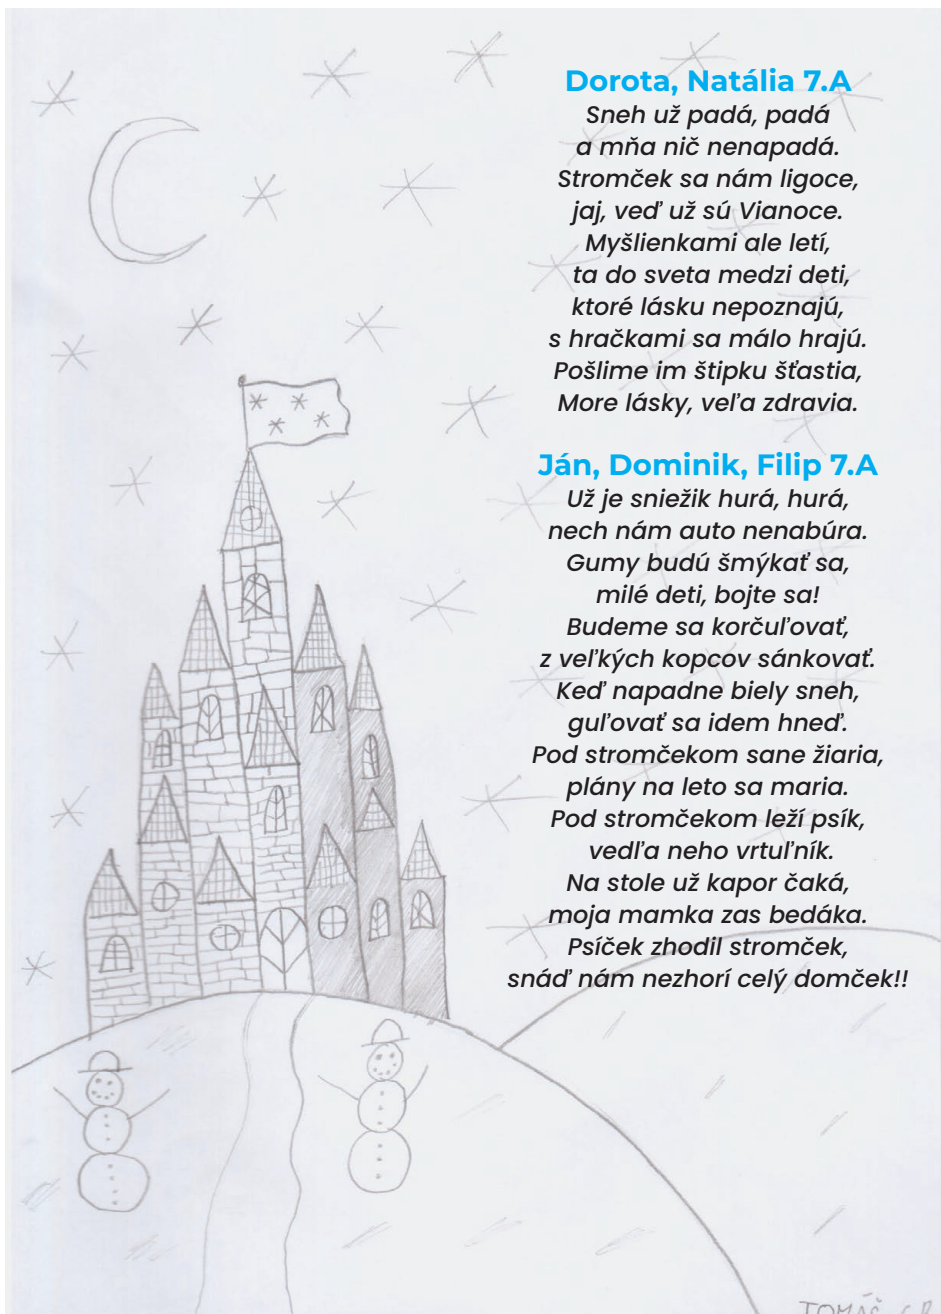 Dorota, Natália 7.A
Sneh už padá, padá
a mňa nič nenapadá.
Stromček sa nám ligoce,
jaj, veď už sú Vianoce.
Myšlienkami ale letí,
ta do sveta medzi deti,
ktoré lásku nepoznajú,
s hračkami sa málo hrajú.
Pošlime im štipku šťastia,
More lásky, veľa zdravia.
Ján, Dominik, Filip 7.A
Už je sniežik hurá, hurá,
nech nám auto nenabúra.
Gumy budú šmýkať sa,
milé deti, bojte sa!
Budeme sa korčuľovať,
z veľkých kopcov sánkovať.
Keď napadne biely sneh,
guľovať sa idem hneď.
Pod stromčekom sane žiaria,
plány na leto sa maria.
Pod stromčekom leží psík,
vedľa neho vrtuľník.
Na stole už kapor čaká,
moja mamka zas bedáka.
Psíček zhodil stromček,
snáď nám nezhorí celý domček!!
TOMÁŠ